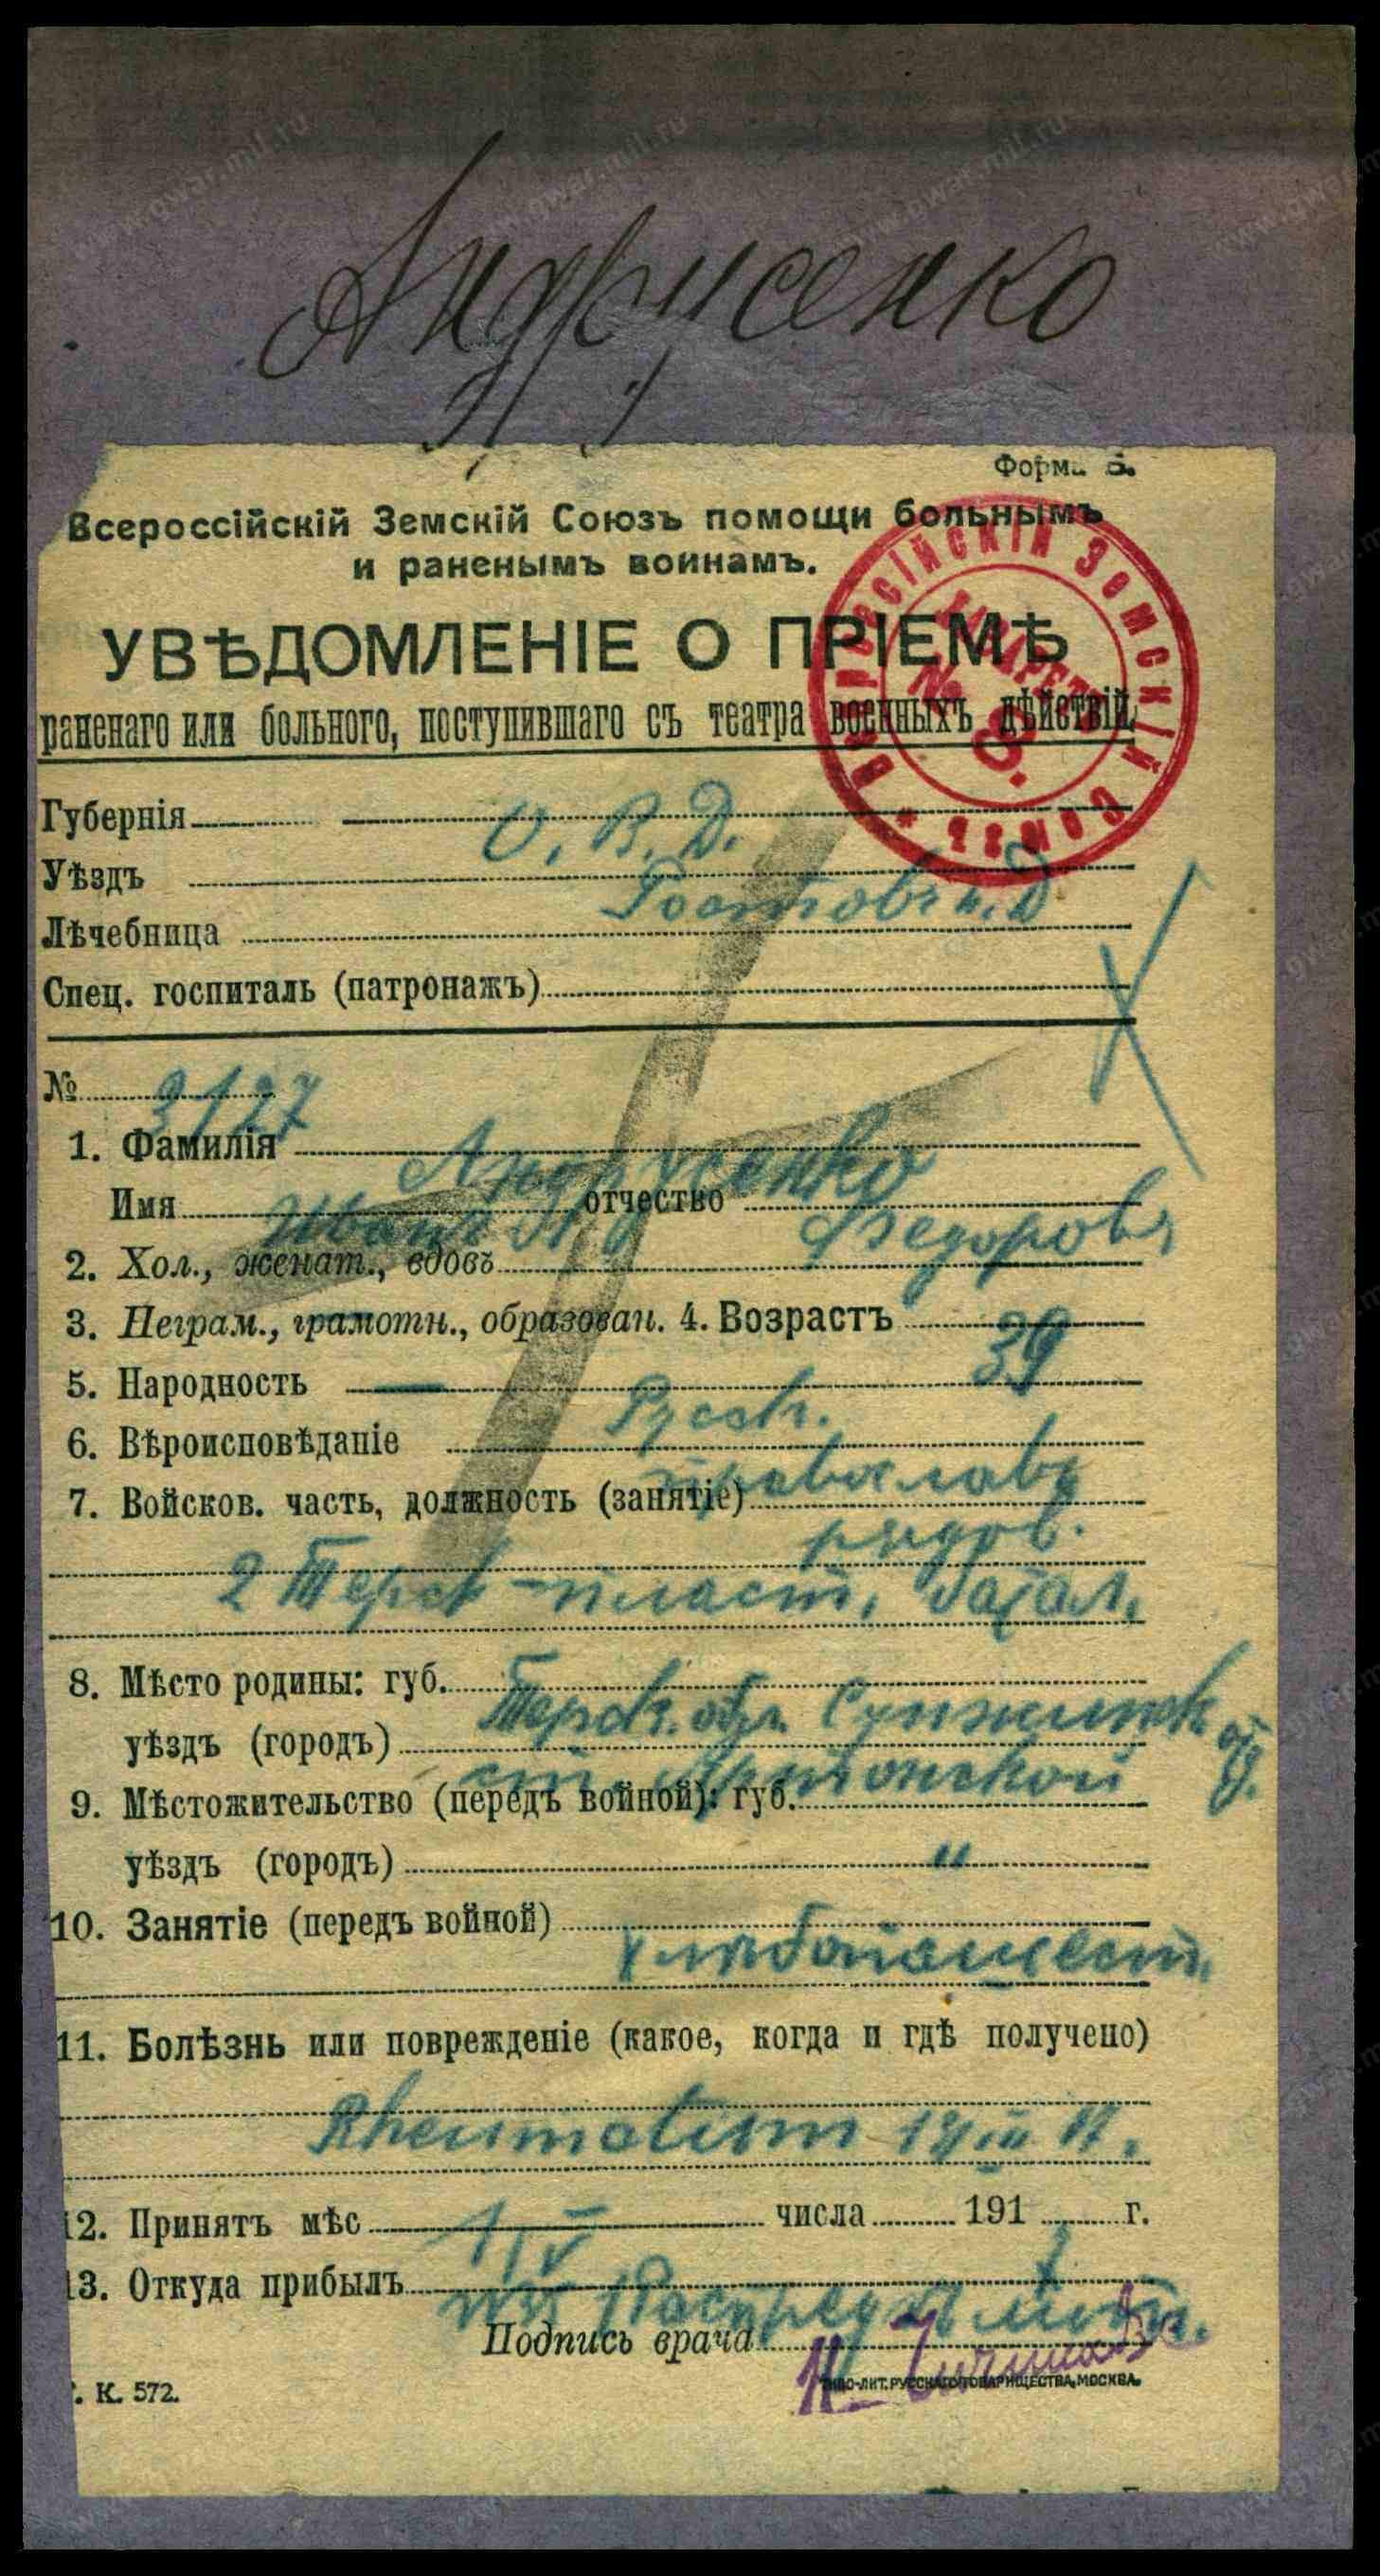 Андрусенко
И. Ф.
Форма 5.
Всероссійскій Земскій Союзъ помощи больнымъ
и раненымъ воинамъ.
УВѢДОМЛЕНІЕ О ПРІЕМѢ
раненаго или больного, поступившаго съ театра военныхъ дѣйствій.
Всероссійскій Земскій Союзъ
№
Губернія О. В. Д.
Уѣздъ
Лѣчебница Ростовъ н. Д
Спец. госпиталь (патронажъ)
№ 3127
1. Фамилія Андрусенко
Имя Иванъ отчество Ѳедоровъ
2. Хол., женат., вдовъ
3. Неграм., грамотн., образован. 4. Возрастъ 39
5. Народность Русск.
6. Вѣроисповѣданіе православ
7. Войсков. часть, должность (занятіе) рядов.
2 Терск пласт. батал.
8. Мѣсто родины: губ. Терск. обл. Сунженск
уѣздъ (городъ) ст.
9. Мѣстожительство (передъ войной): губ.
уѣздъ (городъ) "
10. Занятіе (передъ войной)
хлѣбопашест.
11. Болѣзнь или поврежденіе (какое, когда и гдѣ получено)
Rheumatism 14 III 17.
12. Принятъ мѣс 1/V числа 191 г.
13. Откуда прибылъ
Подпись врача
Г. К. 572.
ТИПО-ЛИТ. РУССКАГО ТОВАРИЩЕСТВА, МОСКВА.
www.gwar.mil.ru